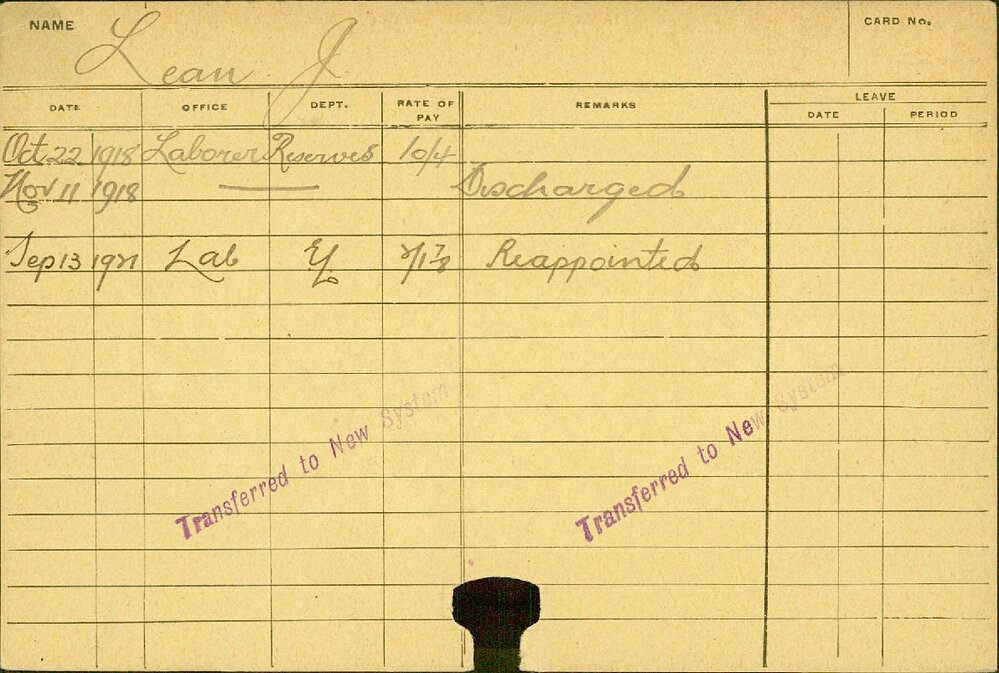 NAME Lean. J. CARD No.
DATE OFFICE DEPT. RATE OF PAY REMARKS LEAVE
DATE PERIOD
Oct 22 1918 Laborer Reserves 10/4
Nov 11 1918 Discharged
Sep 13 1921 Lab Reappointed
Transferred to New System
Transferred to New System